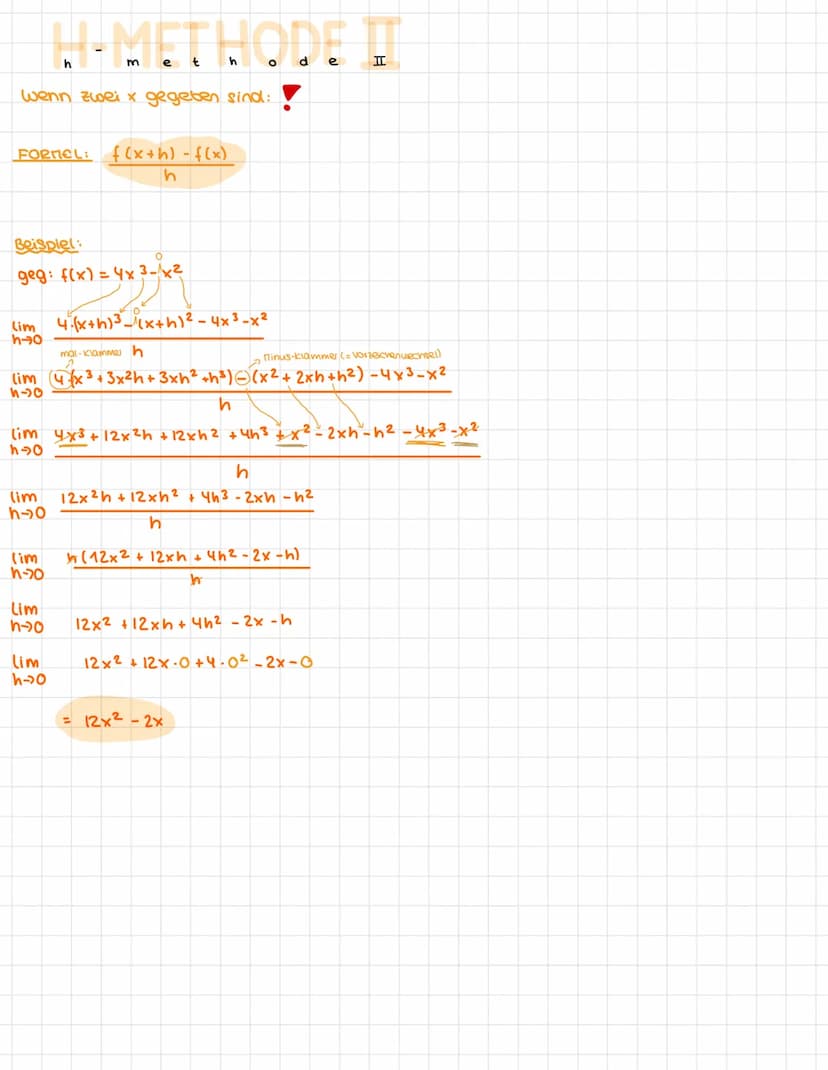 H-METHODE II
h - m e t h o d e II
Wenn zwei x gegeben sind: !
FORMEL: f(x+h) - f(x)
h
Beispiel:
geg: f(x) = 4x³-1x²
lim 4·(x+h)³-1(x+h)² - 4x³-x²
h→0 h
mal-Klammer
Minus-Klammer (= Vorzeichenwechsel)
lim 4·(x³ + 3x²h + 3xh² + h³) - (x² + 2xh + h²) - 4x³ - x²
h→0 h
lim 4x³ + 12x²h + 12xh² + 4h³ + x² - 2xh - h² - 4x³ - x²
h→0 h
lim 12x²h + 12xh² + 4h³ - 2xh - h²
h→0 h
lim h(12x² + 12xh + 4h² - 2x - h)
h→0 h
lim
h→0 12x² + 12xh + 4h² - 2x - h
lim 12x² + 12x·0 + 4·0² - 2x - 0
h→0
= 12x² - 2x